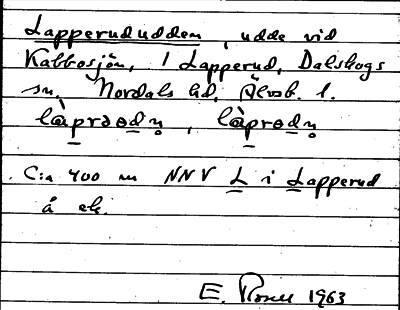 Lapperududden, udde vid
Kabbosjön, 1 Lapperud, Dalskogs
sn. Nordals hd, Älvsb. l.
làprəodn̥, làprədn̥
C:a 400 m NNV L i Lapperud
å ek.
E. 1963